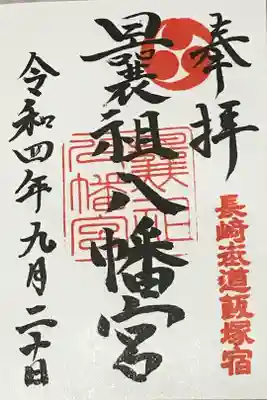 奉拝
長崎街道飯塚宿
曩祖八幡宮
曩祖
八幡宮
令和四年九月二十日